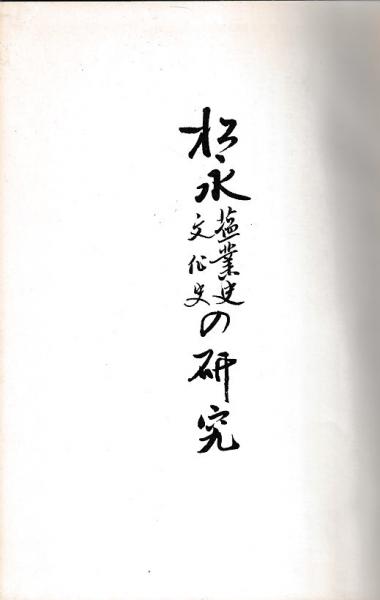 松永
塩業史
文化史
の研究